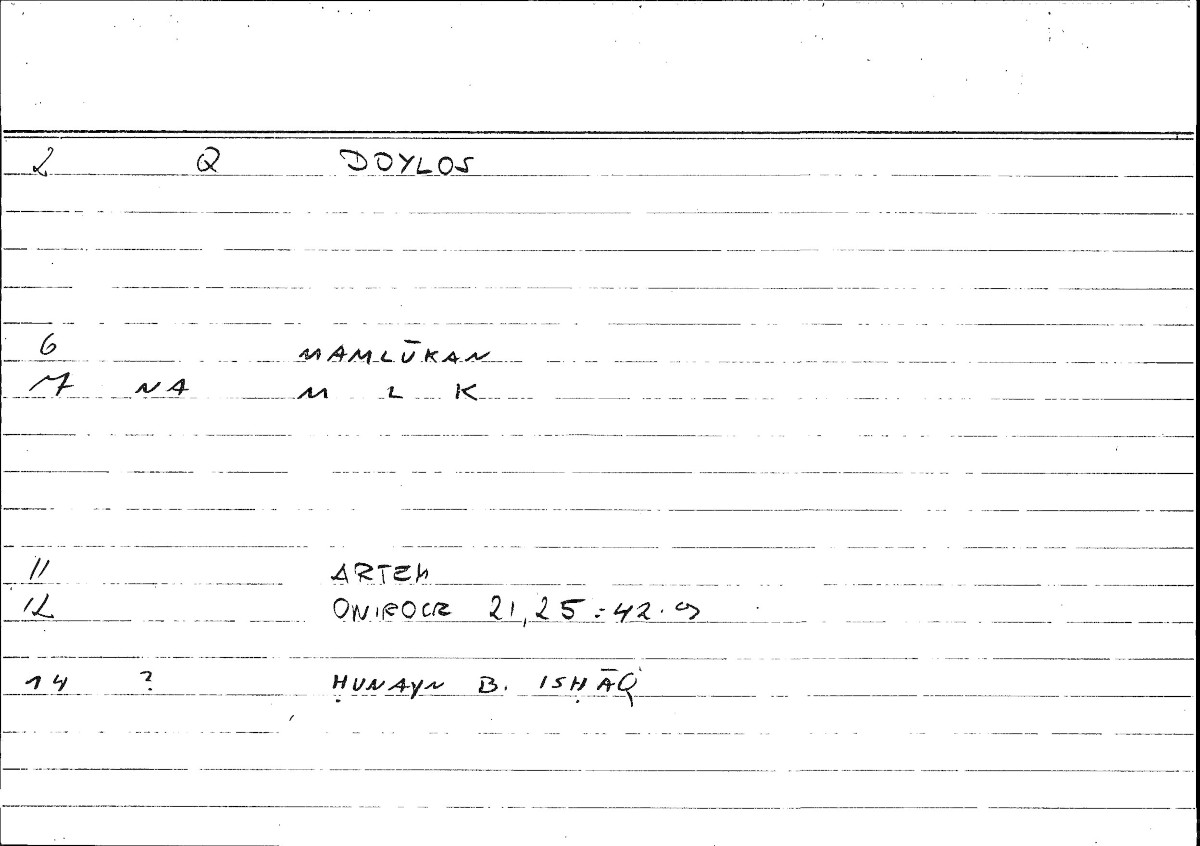 2 Q DOYLOS
6 MAMLŪKAN
7 NA M L K
11 ARTEM
12 ONIROCR 21,25 = 42.9
14 ? ḤUNAYN B. ISḤĀQ